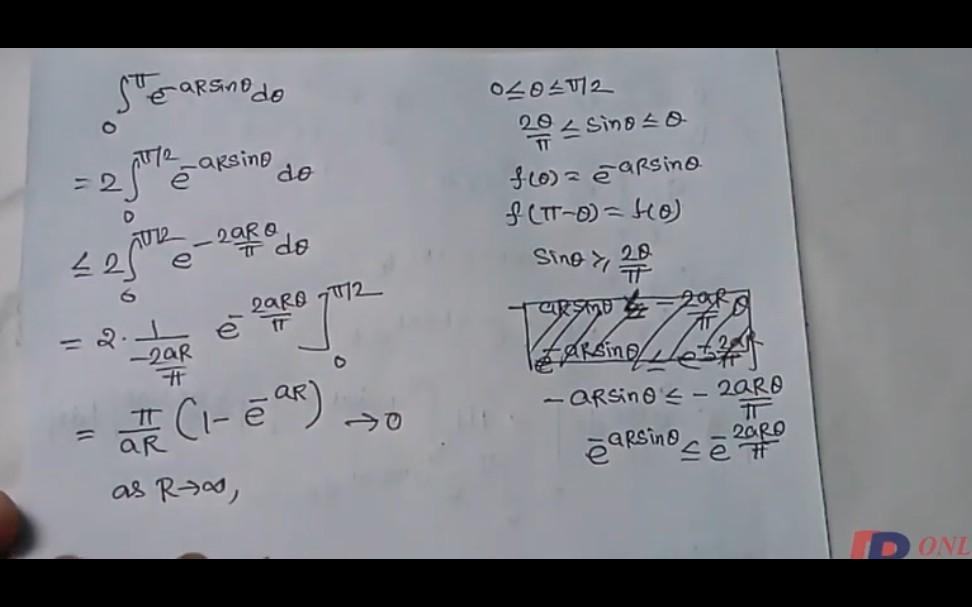 ∫₀^π e^{-aRsinθ} dθ
= 2∫₀^{π/2} e^{-aRsinθ} dθ
≤ 2∫₀^{π/2} e^{-2aRθ/π} dθ
= 2 · 1/(-2aR/π) e^{-2aRθ/π} ]₀^{π/2}
= π/aR (1 - e^{-aR}) → 0
as R→∞,
0 ≤ θ ≤ π/2
2θ/π ≤ sinθ ≤ θ
f(θ) = e^{-aRsinθ}
f(π-θ) = f(θ)
sinθ ≥ 2θ/π
-aRsinθ ≤ -2aRθ/π
e^{-aRsinθ} ≤ e^{-2aRθ/π}
ONL